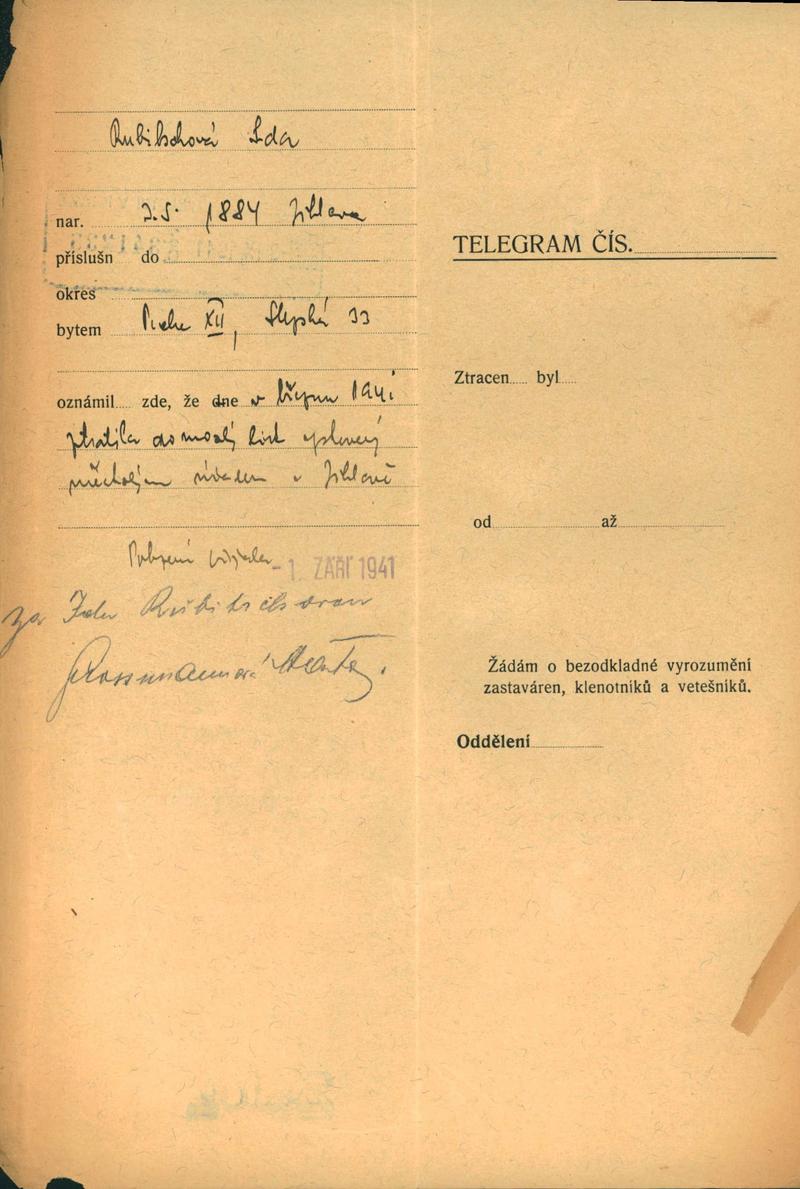 Rubitschová Ida
nar. 3.5. 1884 Jihlava
příslušn do
okres
bytem Praha XII, Slezská 33
oznámil..... zde, že dne v březnu 1941
ztratila domovský list vystavený
městským úřadem v Jihlavě
Potvrzení vydáno - 1. ZÁŘÍ 1941
za Idu Rubitschovou
TELEGRAM ČÍS.
Ztracen..... byl.....
od až
Žádám o bezodkladné vyrozumění
zastaváren, klenotníků a vetešníků.
Oddělení